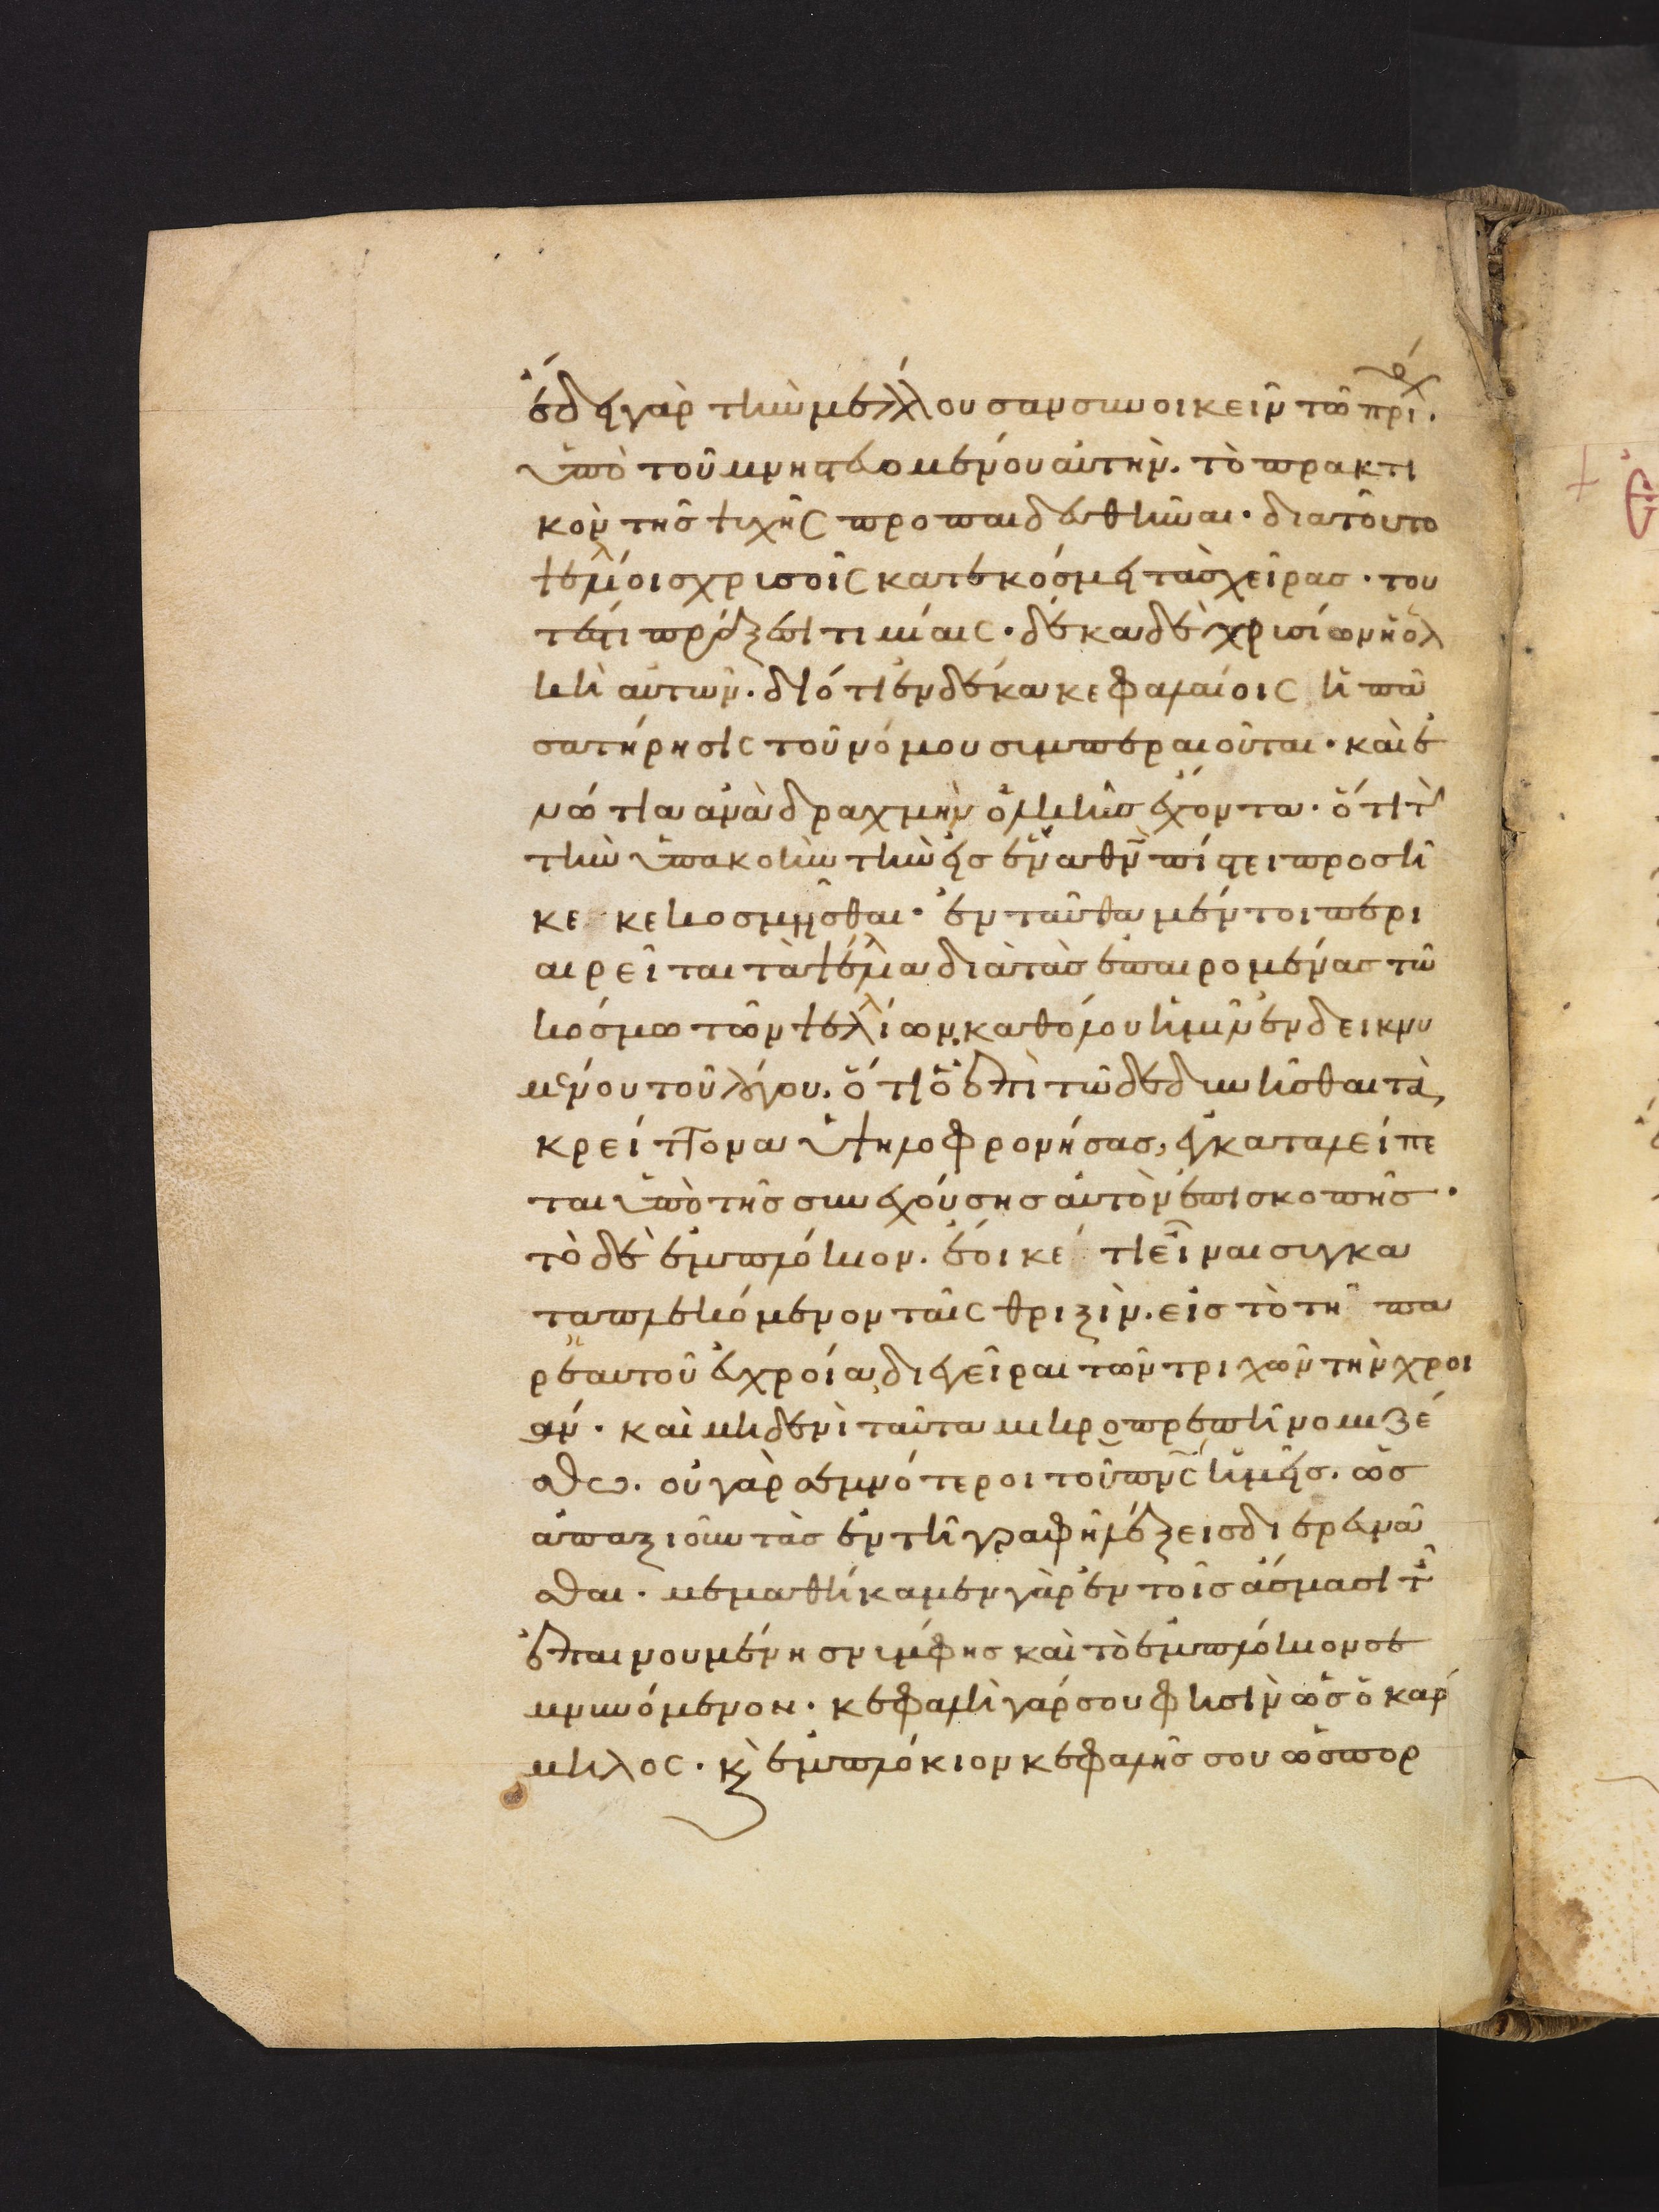 ἔδει γὰρ τὴν μέλλουσαν συνοικεῖν τῶ πρι̅ άρχ
ὑπὸ τοῦ μνηστευομένου αὐτὴν. τὸ πρακτι
κὸν τῆς ψυχῆς προπαιδευθῆναι· διατοῦτο
ψελλίοις χρυσοῖς κατεκόσμει τὰς χεῖρας· του
τέστι πράξεσι τιμίαις· δέκα δὲ χρυσίων ἡ ὁλ
κὴ αὐτῶν· διότι ἐν δέκα κεφαλαίοις ἡ πᾶ
σα τήρησις τοῦ νόμου συμπεραιοῦται· καὶ ἐ
νώτια ἀνὰ δραχμὴν ὁλκῆς ἔχοντα· ὅτι τὲ
τὴν ὑπακοὴν τὴν εἰς ἕνα θν̅ πίστει προσῆ
κε κεκοσμῆσθαι· ἐνταῦθα μέντοι περι
αιρεῖται τὰ ψέλλια διὰ τὰς ἐπαιρομένας τῶ
κόσμω τῶν ψελλίων, καθόλου ἡμῖν ἐνδεικνυ
μένου τοῦ λόγου. ὅτι ὁ ἐπὶ τῶ δεδυνῆσθαι τὰ
κρείττονα ὑψηλοφρονήσας, ἐγκαταλείπε
ται ὑπὸ τῆς συνεχούσης αὐτὸν ἐπισκοπῆς·
τὸ δὲ ἐμπλόκιον. ἔοικέ τι εἶναι συγκα
ταπλεκόμενον ταῖς θριξὶν. εἰς τὸ τῆ πα
ρ ἑαυτοῦ εὐχροία διεγεῖραι τῶν τριχῶν τὴν χροι
άν· καὶ μηδενὶ ταῦτα μικροπρεπῆ νομιζέ
σθω. οὐ γὰρ σεμνότεροι τοῦ πν̅ς ἡμεῖς. ὡς
ἀπαξιοῦν τὰς ἐν τῆ γραφῆ λέξεις διερευνᾶ
σθαι· μεμαθήκαμεν γὰρ ἐν τοῖς ἄσμασι τῆ
ἐπαινουμένης νύμφης καὶ τὸ ἐμπλόκιον σε
μνυνόμενον· κεφαλὴ γάρ σου φησὶν ὡς ὁ κάρ
μηλος· κ̀ ἐμπλόκιον κεφαλῆς σου ὡς πορ